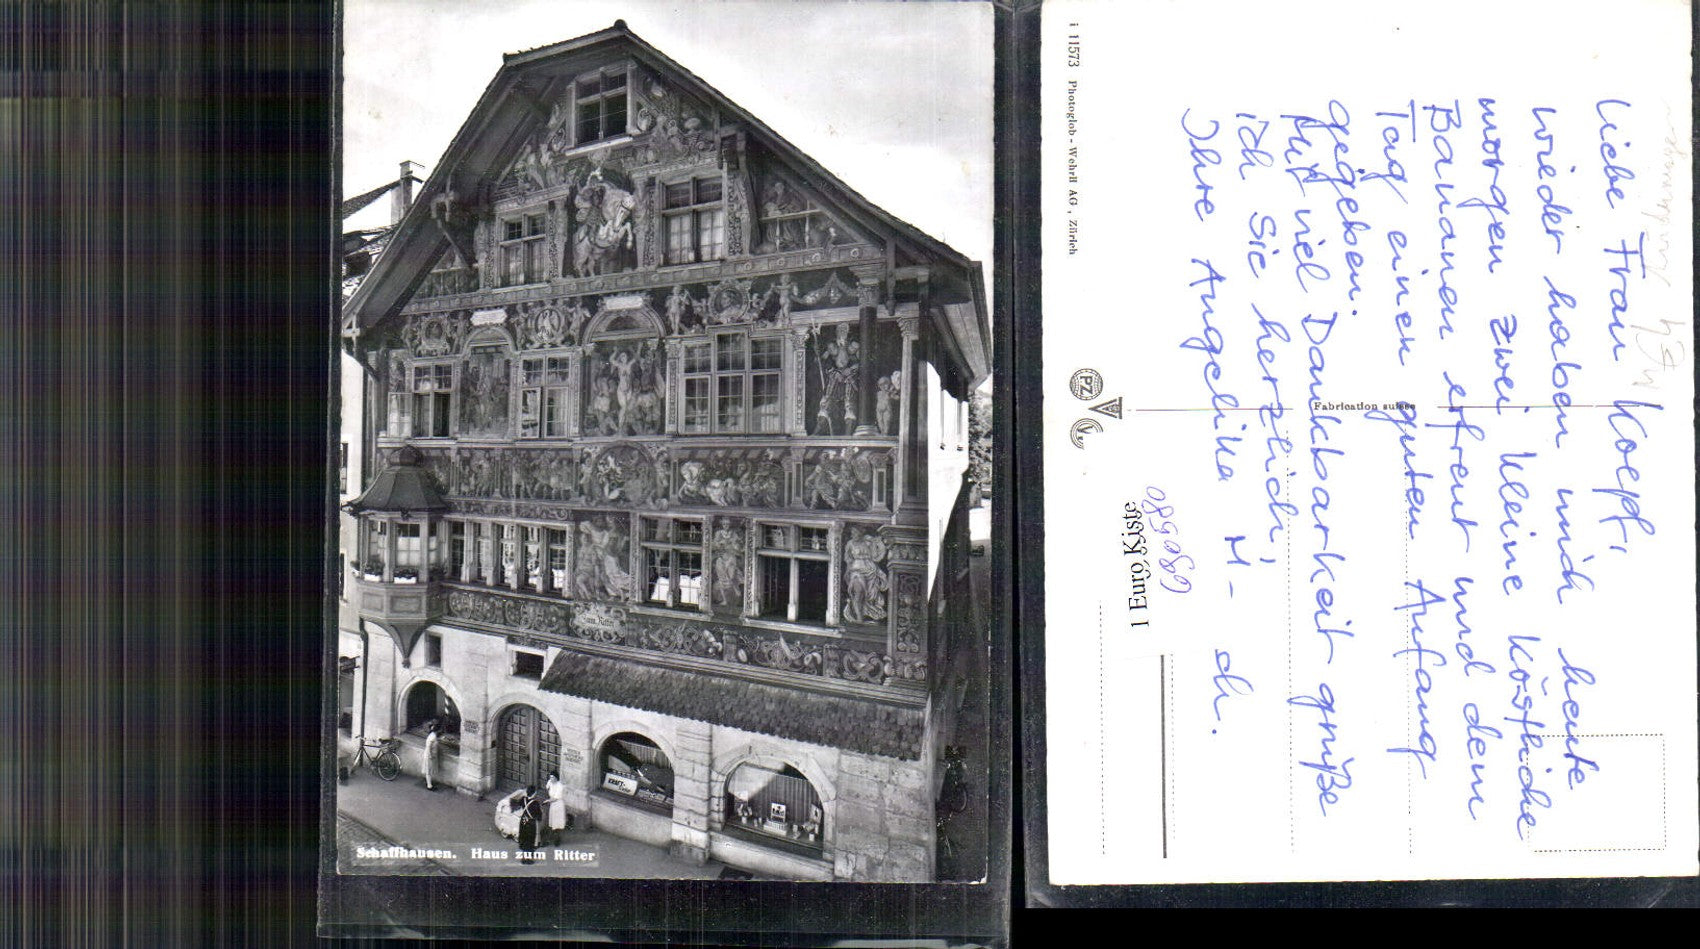 Zum Ritter
KRAFT
Schaffhausen. Haus zum Ritter
i 11573 Photoglob - Wehrli AG, Zürich
PZ
Fabrication suisse
1 Euro Kiste
089580
Liebe Frau Koepf,
wieder haben mich heute
morgen zwei kleine köstliche
Bananen erfreut und dem
Tag einen guten Anfang
gegeben.
Mit viel Dankbarkeit grüße
ich Sie herzlich,
Ihre Angelika M-